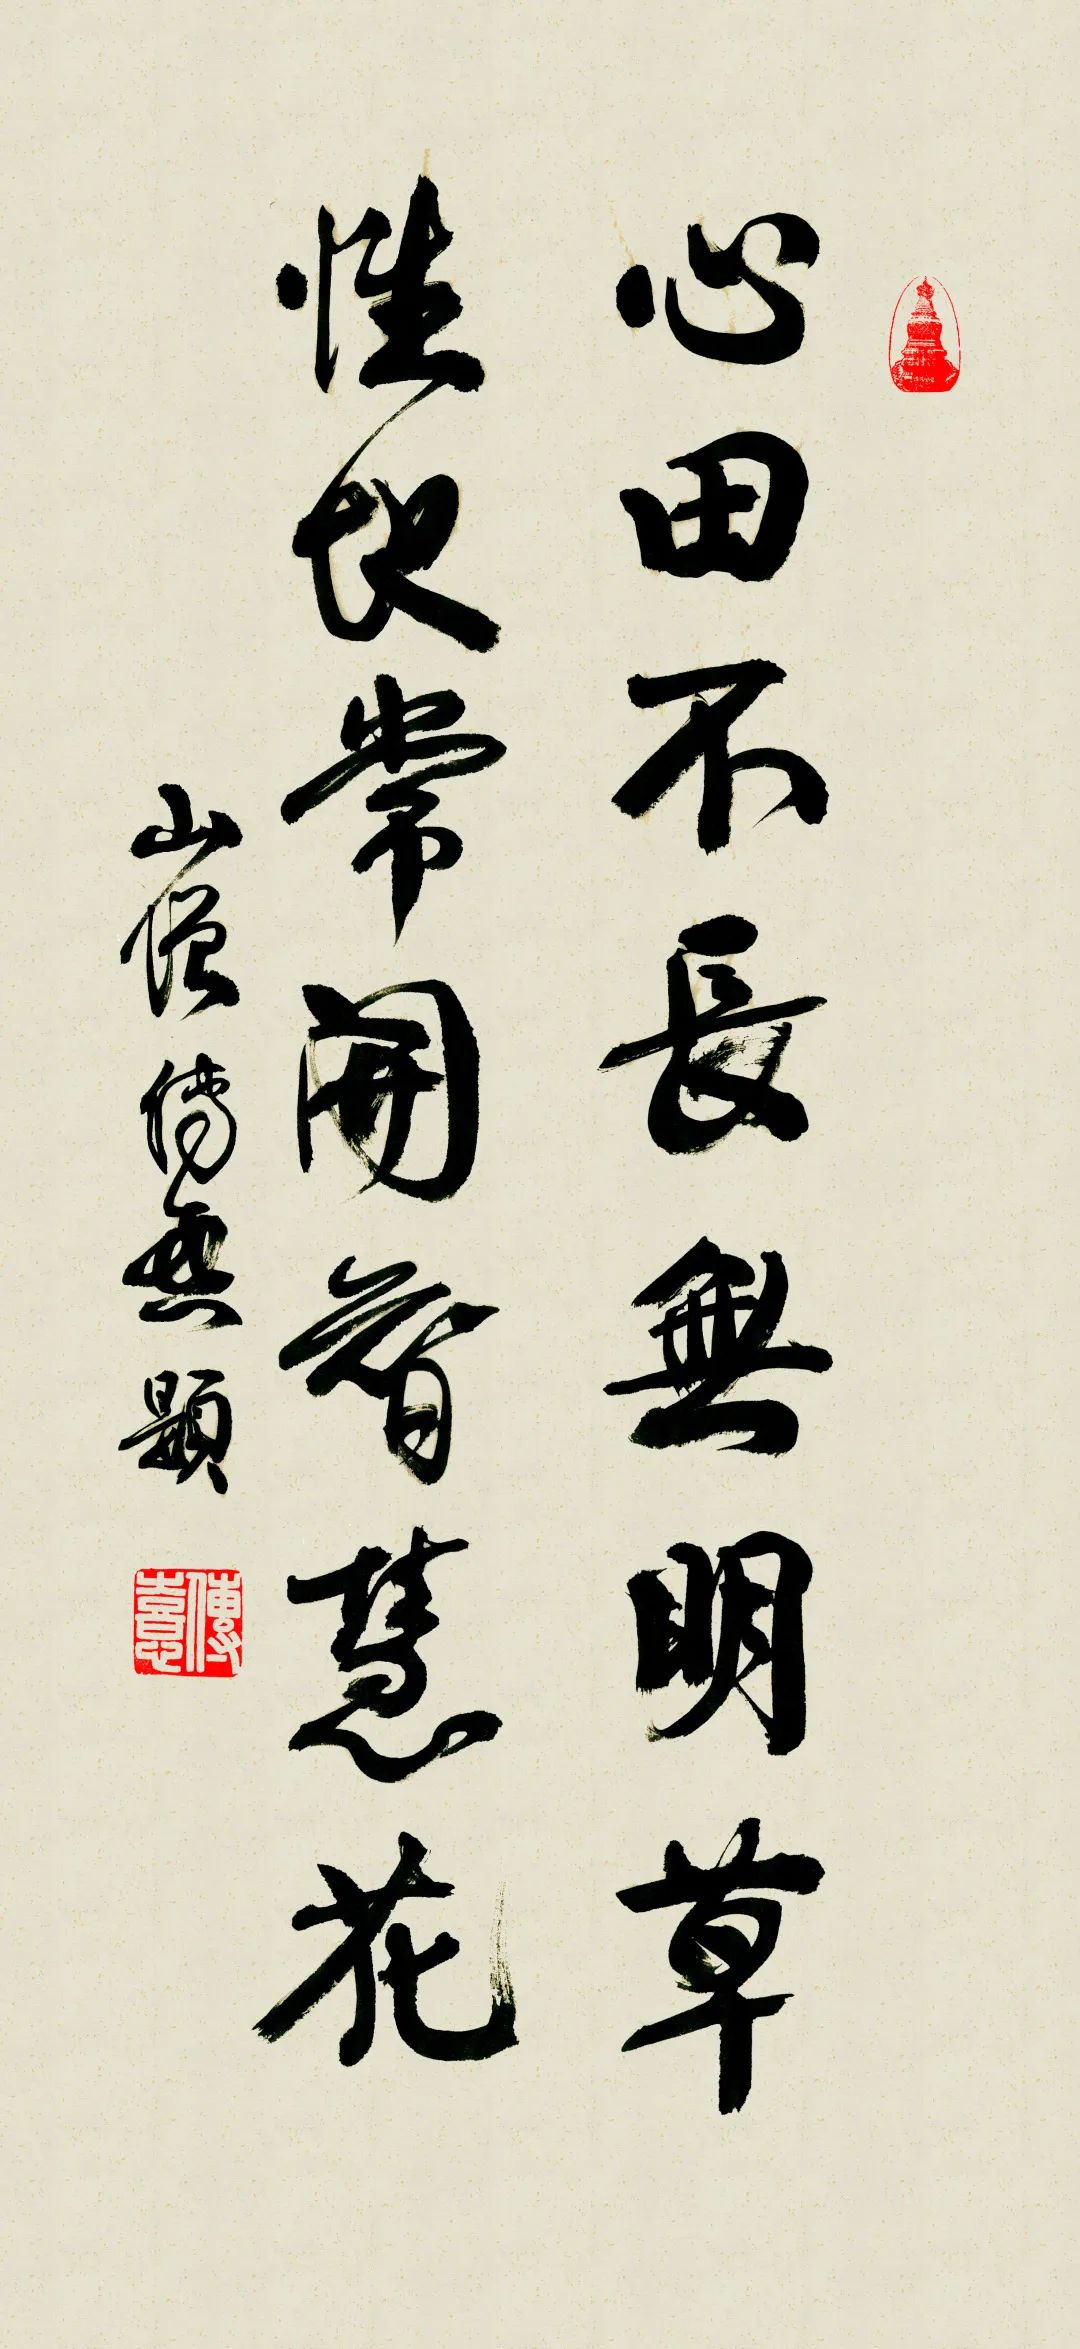 心田不長無明草
性地常開智慧花
山僧傳喜題
傳喜